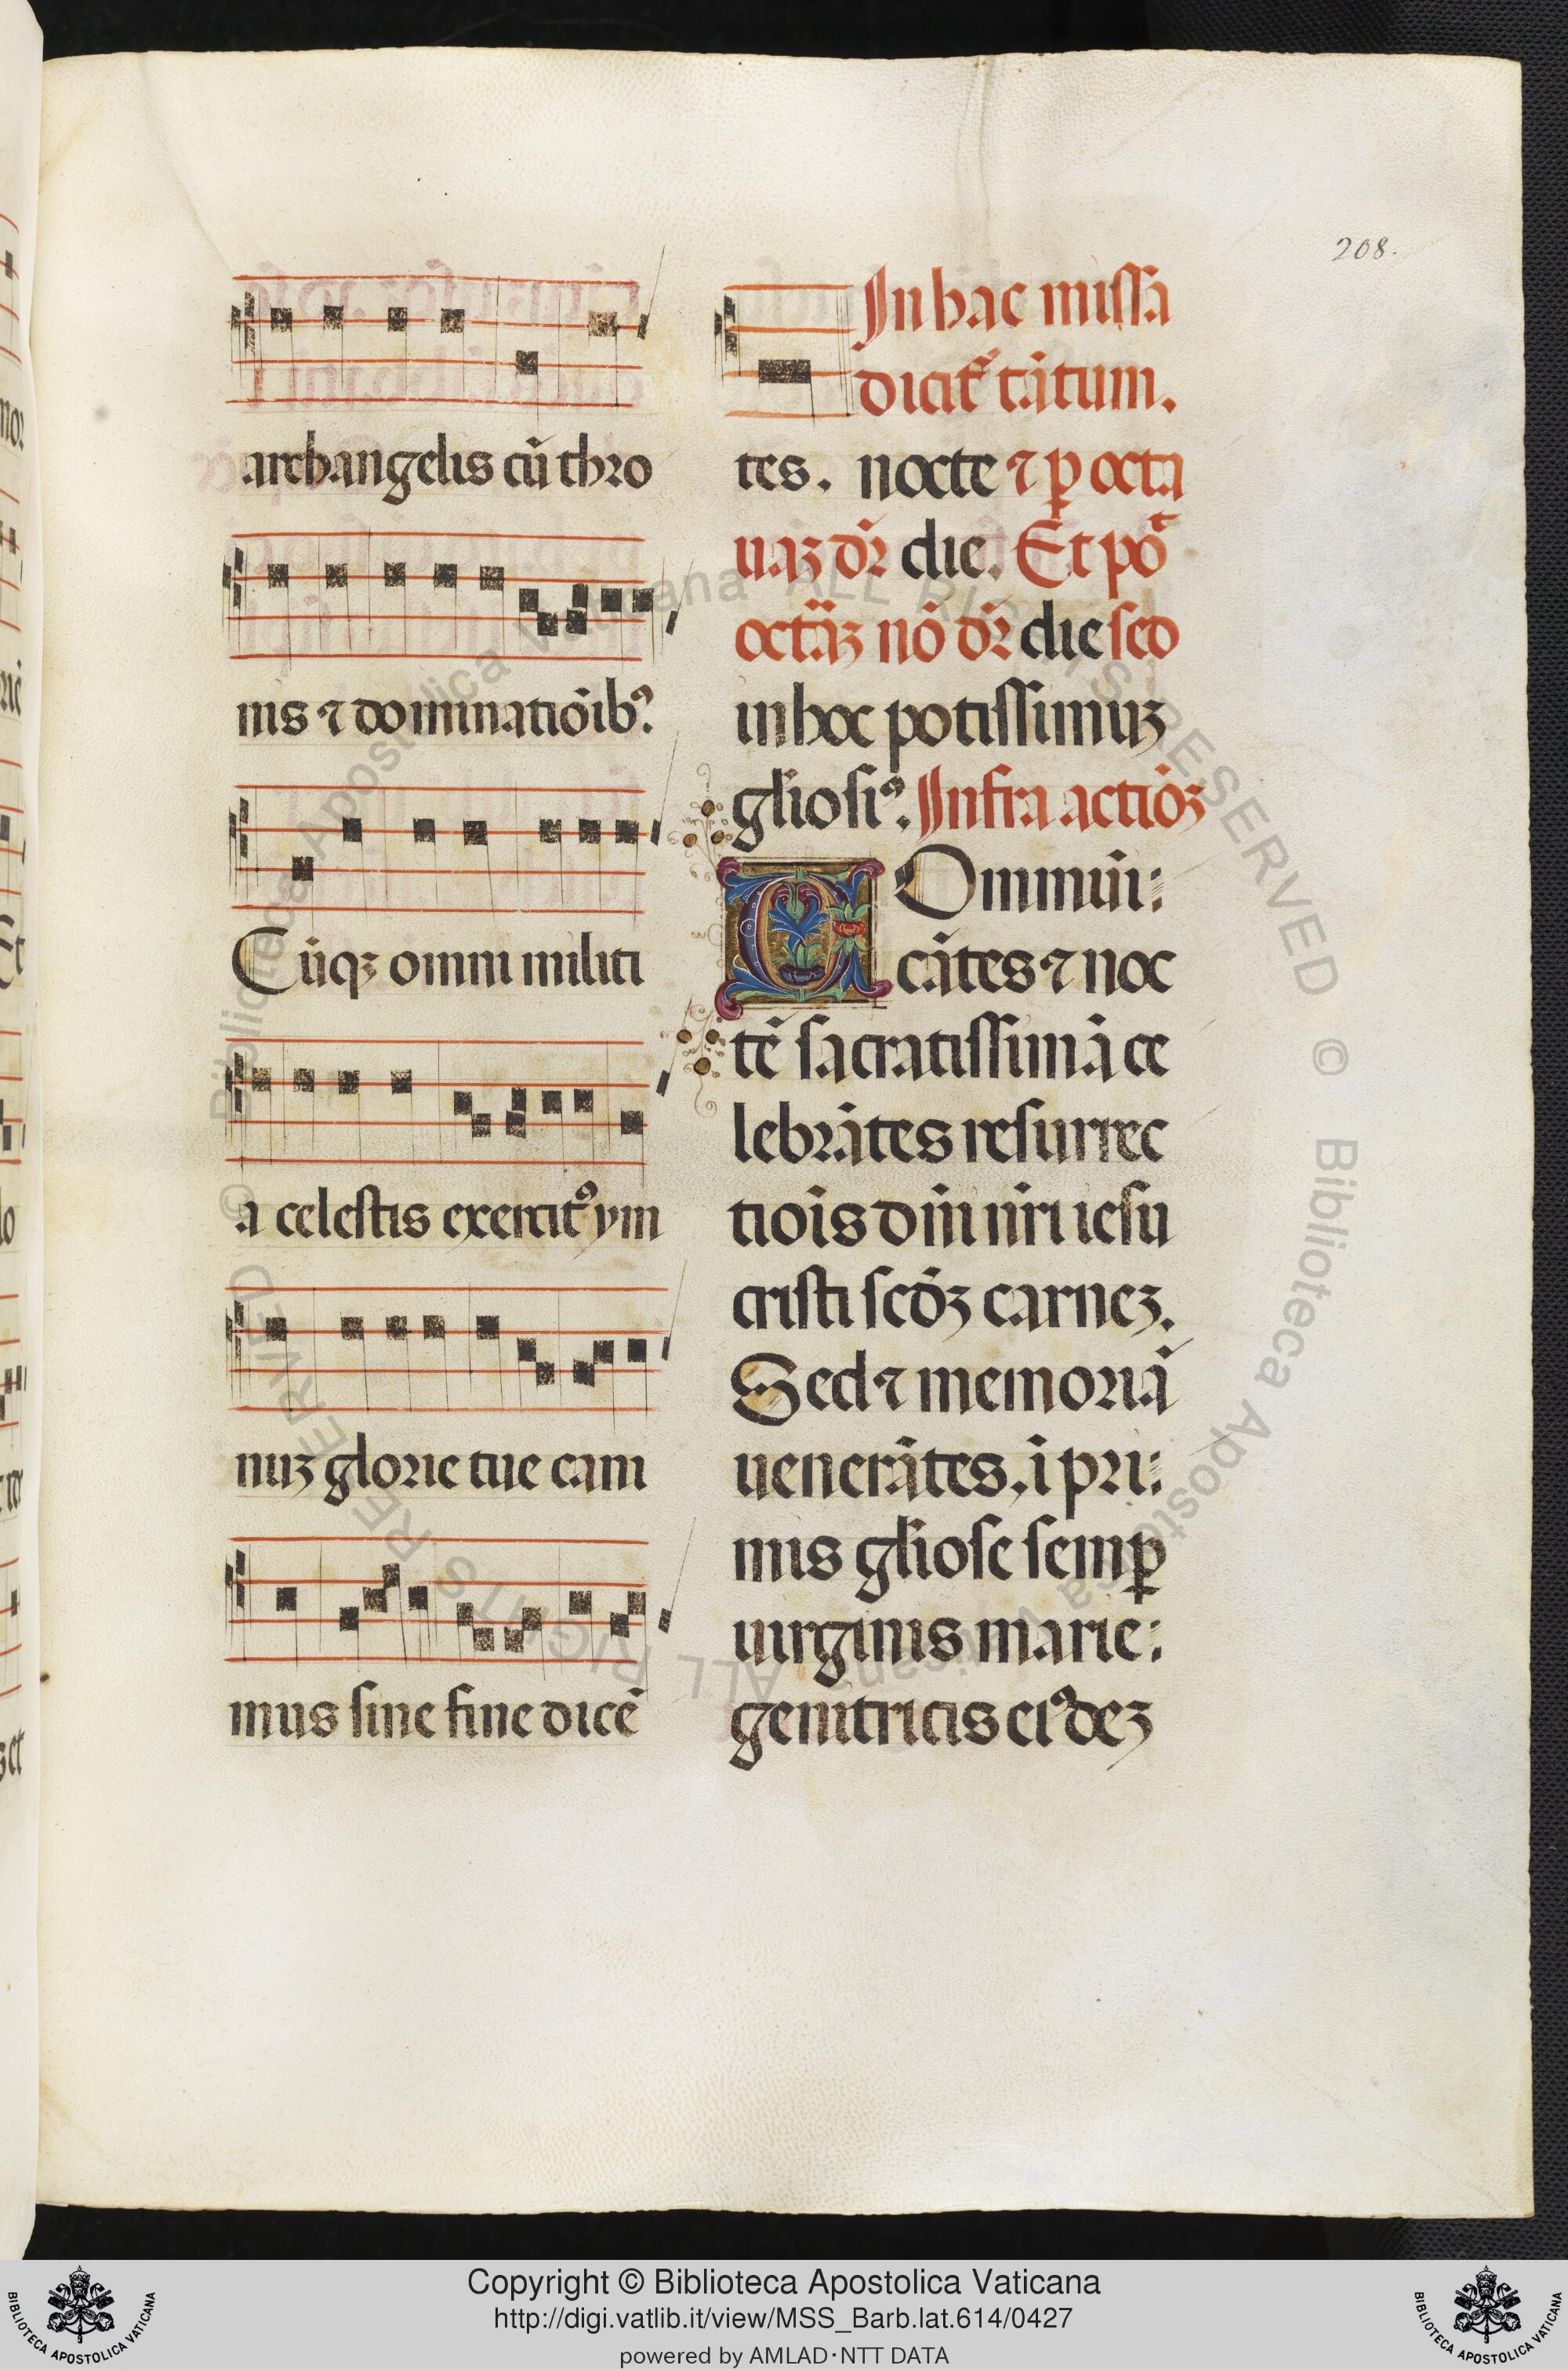 208.
archangelis cū thro
nis ⁊ dominatiōibꝰ.
Cūqꝫ omni militi
a celestis exercitꝰ ym
nuꝫ glorie tue cani
mus sine fine dicē
In hac missa
dicit᷑ tātum.
tes. nocte ⁊ ꝑ octa
uaꝫ dr̄ die. Et pō
octāꝫ nō dr̄ die sed
in hoc potissimuꝫ
gl̄iosiꝰ. Infra actiōꝫ
COmmūi:
cātes ⁊ noc
tē sacratissimā ce
lebrātes resurrec
tiōis dn̄i nr̄i iesu
cristi scd̄ꝫ carneꝫ.
Sed ⁊ memoriā
uenerātes. ī pri:
mis gl̄iose semꝑ
uirginis marie:
genitricis eiꝰdeꝫ
© Biblioteca Apostolica Vaticana ALL RIGHTS RESERVED
© Biblioteca Apostolica Vaticana ALL RIGHTS RESERVED
Copyright © Biblioteca Apostolica Vaticana
http://digi.vatlib.it/view/MSS_Barb.lat.614/0427
powered by AMLAD·NTT DATA
BIBLIOTECA APOSTOLICA VATICANA
BIBLIOTECA APOSTOLICA VATICANA